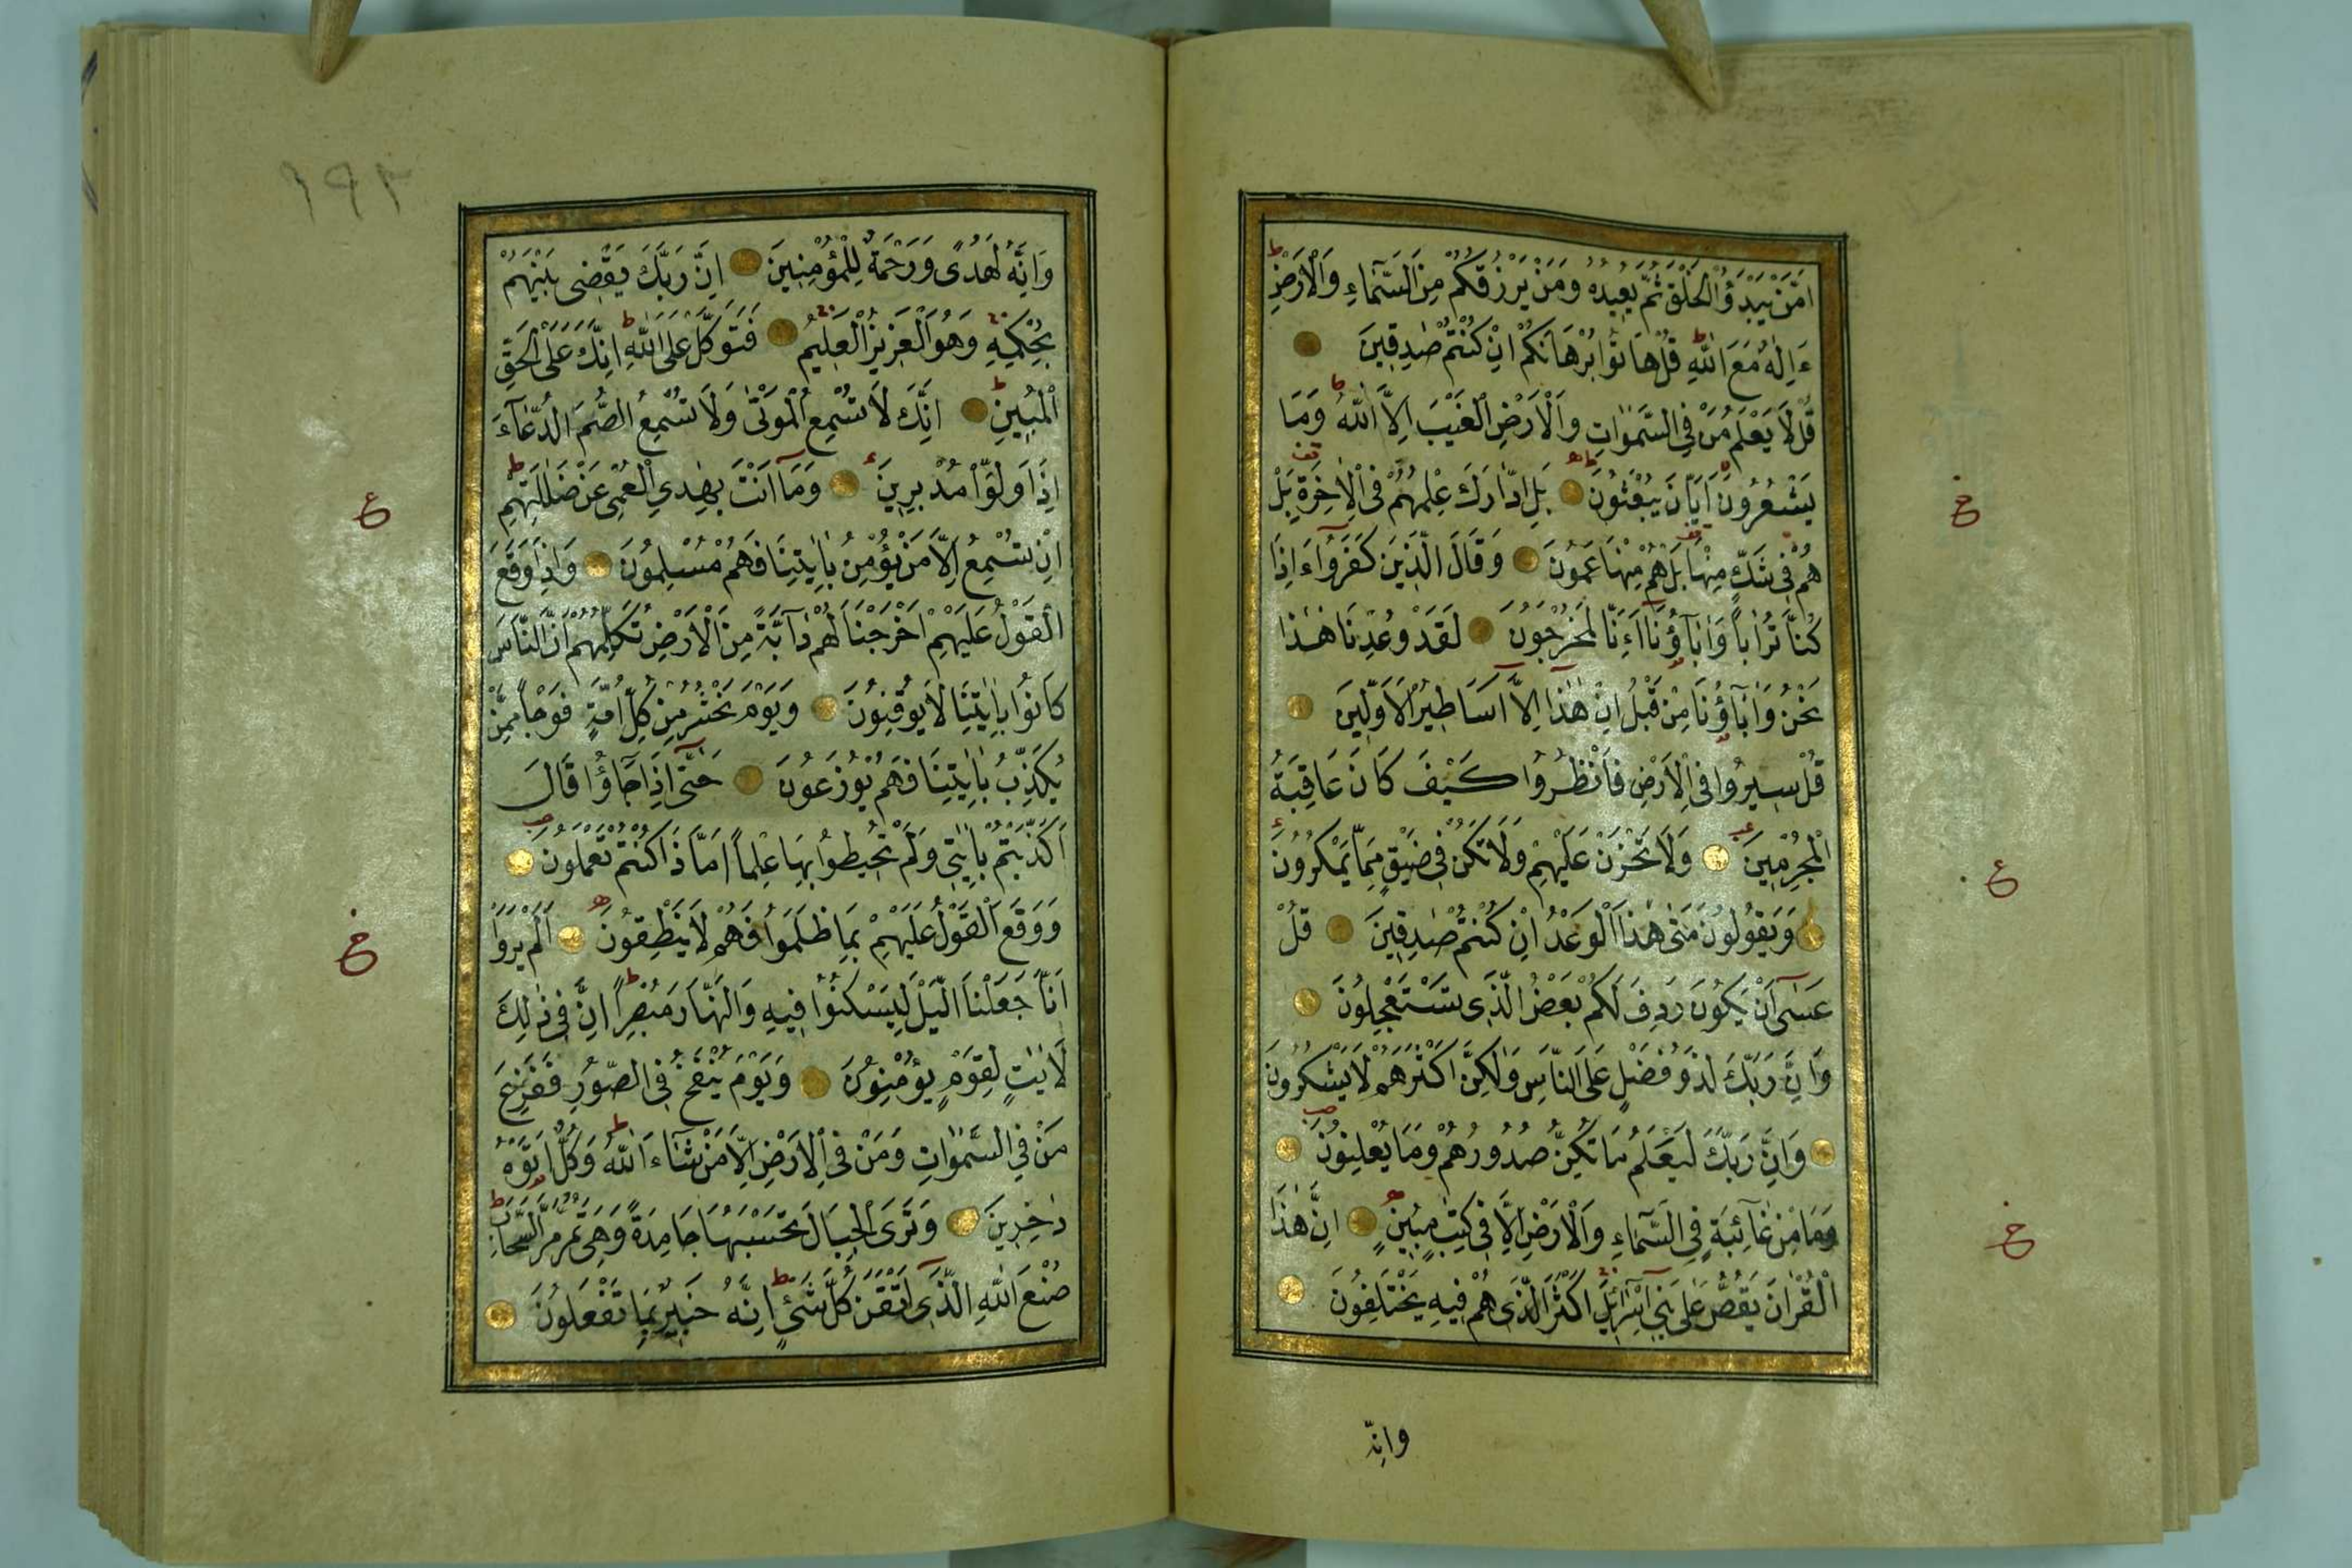 اَمَّنْ يَبْدَؤُا الْخَلْقَ ثُمَّ يُعِيدُهُ وَمَنْ يَرْزُقُكُمْ مِنَ السَّمَٓاءِ وَالْاَرْضِ
ءَاِلٰهٌ مَعَ اللّٰهِ قُلْ هَاتُوا بُرْهَانَكُمْ اِنْ كُنْتُمْ صٰدِقِينَ
قُلْ لَا يَعْلَمُ مَنْ فِي السَّمٰوَاتِ وَالْاَرْضِ الْغَيْبَ اِلَّا اللّٰهُ وَمَا
يَشْعُرُونَ اَيَّانَ يُبْعَثُونَ بَلِ ادَّارَكَ عِلْمُهُمْ فِي الْاٰخِرَةِ بَلْ
هُمْ فِي شَكٍّ مِنْهَا بَلْ هُمْ مِنْهَا عَمُونَ وَقَالَ الَّذِينَ كَفَرُٓوا ءَاِذَا
كُنَّا تُرَاباً وَاٰبَٓاؤُ۬نَٓا اَئِنَّا لَمُخْرَجُونَ لَقَدْ وُعِدْنَا هٰذَا
نَحْنُ وَاٰبَٓاؤُ۬نَا مِنْ قَبْلُ اِنْ هٰذَٓا اِلَّٓا اَسَاطِيرُ الْاَوَّلِينَ
قُلْ سِيرُوا فِي الْاَرْضِ فَانْظُرُوا كَيْفَ كَانَ عَاقِبَةُ
الْمُجْرِمِينَ وَلَا تَحْزَنْ عَلَيْهِمْ وَلَا تَكُنْ فِي ضَيْقٍ مِمَّا يَمْكُرُونَ
وَيَقُولُونَ مَتٰى هٰذَا الْوَعْدُ اِنْ كُنْتُمْ صٰدِقِينَ قُلْ
عَسٰٓى اَنْ يَكُونَ رَدِفَ لَكُمْ بَعْضُ الَّذِي تَسْتَعْجِلُونَ
وَاِنَّ رَبَّكَ لَذُو فَضْلٍ عَلَى النَّاسِ وَلٰكِنَّ اَكْثَرَهُمْ لَا يَشْكُرُونَ
وَاِنَّ رَبَّكَ لَيَعْلَمُ مَا تُكِنُّ صُدُورُهُمْ وَمَا يُعْلِنُونَ
وَمَا مِنْ غَٓائِبَةٍ فِي السَّمَٓاءِ وَالْاَرْضِ اِلَّا فِي كِتٰبٍ مُبِينٍ اِنَّ هٰذَا
الْقُرْاٰنَ يَقُصُّ عَلٰى بَنِٓي اِسْرَٓائِلَ اَكْثَرَ الَّذِي هُمْ فِيهِ يَخْتَلِفُونَ
وانّه
١٩٢
وَاِنَّهُ لَهُدًى وَرَحْمَةٌ لِلْمُؤْمِنِينَ اِنَّ رَبَّكَ يَقْضِي بَيْنَهُمْ
بِحُكْمِهِ وَهُوَ الْعَزِيزُ الْعَلِيمُ فَتَوَكَّلْ عَلَى اللّٰهِ اِنَّكَ عَلَى الْحَقِّ
الْمُبِينِ اِنَّكَ لَا تُسْمِعُ الْمَوْتٰى وَلَا تُسْمِعُ الصُّمَّ الدُّعَٓاءَ
اِذَا وَلَّوْا مُدْبِرِينَ وَمَٓا اَنْتَ بِهٰدِي الْعُمْيِ عَنْ ضَلٰلَتِهِمْ
اِنْ تُسْمِعُ اِلَّا مَنْ يُؤْمِنُ بِاٰيٰتِنَا فَهُمْ مُسْلِمُونَ وَاِذَا وَقَعَ
الْقَوْلُ عَلَيْهِمْ اَخْرَجْنَا لَهُمْ دَٓابَّةً مِنَ الْاَرْضِ تُكَلِّمُهُمْ اَنَّ النَّاسَ
كَانُوا بِاٰيٰتِنَا لَا يُوقِنُونَ وَيَوْمَ نَحْشُرُ مِنْ كُلِّ اُمَّةٍ فَوْجاً مِمَّنْ
يُكَذِّبُ بِاٰيٰتِنَا فَهُمْ يُوزَعُونَ حَتّٰٓى اِذَا جَٓاؤُا قَالَ
اَكَذَّبْتُمْ بِاٰيٰتِي وَلَمْ تُحِيطُوا بِهَا عِلْماً اَمَّا ذَا كُنْتُمْ تَعْمَلُونَ
وَوَقَعَ الْقَوْلُ عَلَيْهِمْ بِمَا ظَلَمُوا فَهُمْ لَا يَنْطِقُونَ اَلَمْ يَرَوْا
اَنَّا جَعَلْنَا الَّيْلَ لِيَسْكُنُوا فِيهِ وَالنَّهَارَ مُبْصِراً اِنَّ فِي ذٰلِكَ
لَاٰيٰتٍ لِقَوْمٍ يُؤْمِنُونَ وَيَوْمَ يُنْفَخُ فِي الصُّورِ فَفَزِعَ
مَنْ فِي السَّمٰوَاتِ وَمَنْ فِي الْاَرْضِ اِلَّا مَنْ شَٓاءَ اللّٰهُ وَكُلٌّ اَتَوْهُ
دٰخِرِينَ وَتَرَى الْجِبَالَ تَحْسَبُهَا جَامِدَةً وَهِيَ تَمُرُّ مَرَّ السَّحَابِ
صُنْعَ اللّٰهِ الَّذِٓي اَتْقَنَ كُلَّ شَيْءٍ اِنَّهُ خَبِيرٌ بِمَا تَفْعَلُونَ